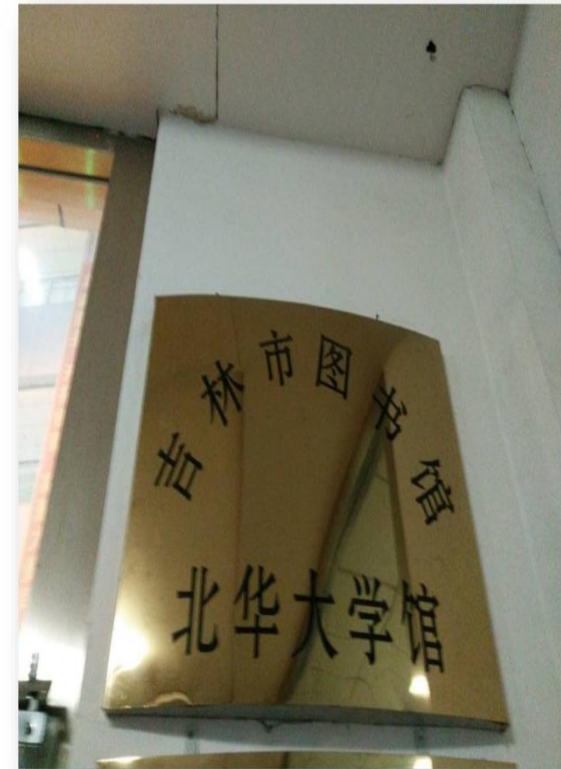 吉林市图书馆
北华大学馆